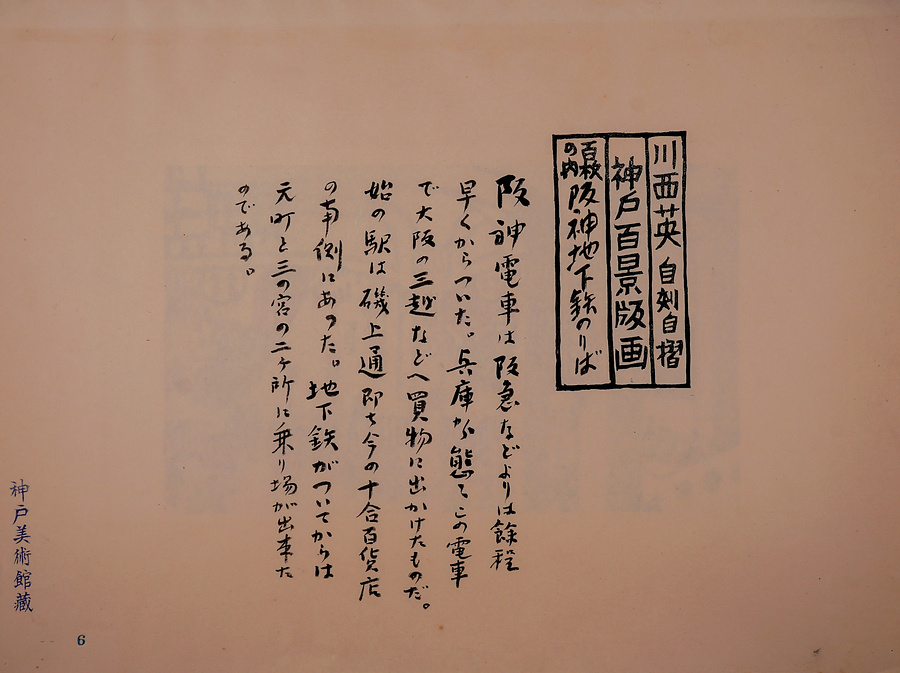 川西英 自刻自摺
神戸百景版画
百枚の内 阪神地下鉄のりば
阪神電車は阪急などよりは餘程
早くからついた。兵庫から態々この電車
で大阪の三越などへ買物に出かけたものだ。
始の駅は磯上通即ち今の十合百貨店
の南側にあった。地下鉄がついてからは
元町と三の宮の二ヶ所に乗り場が出来た
のである。
神戸美術館蔵
6